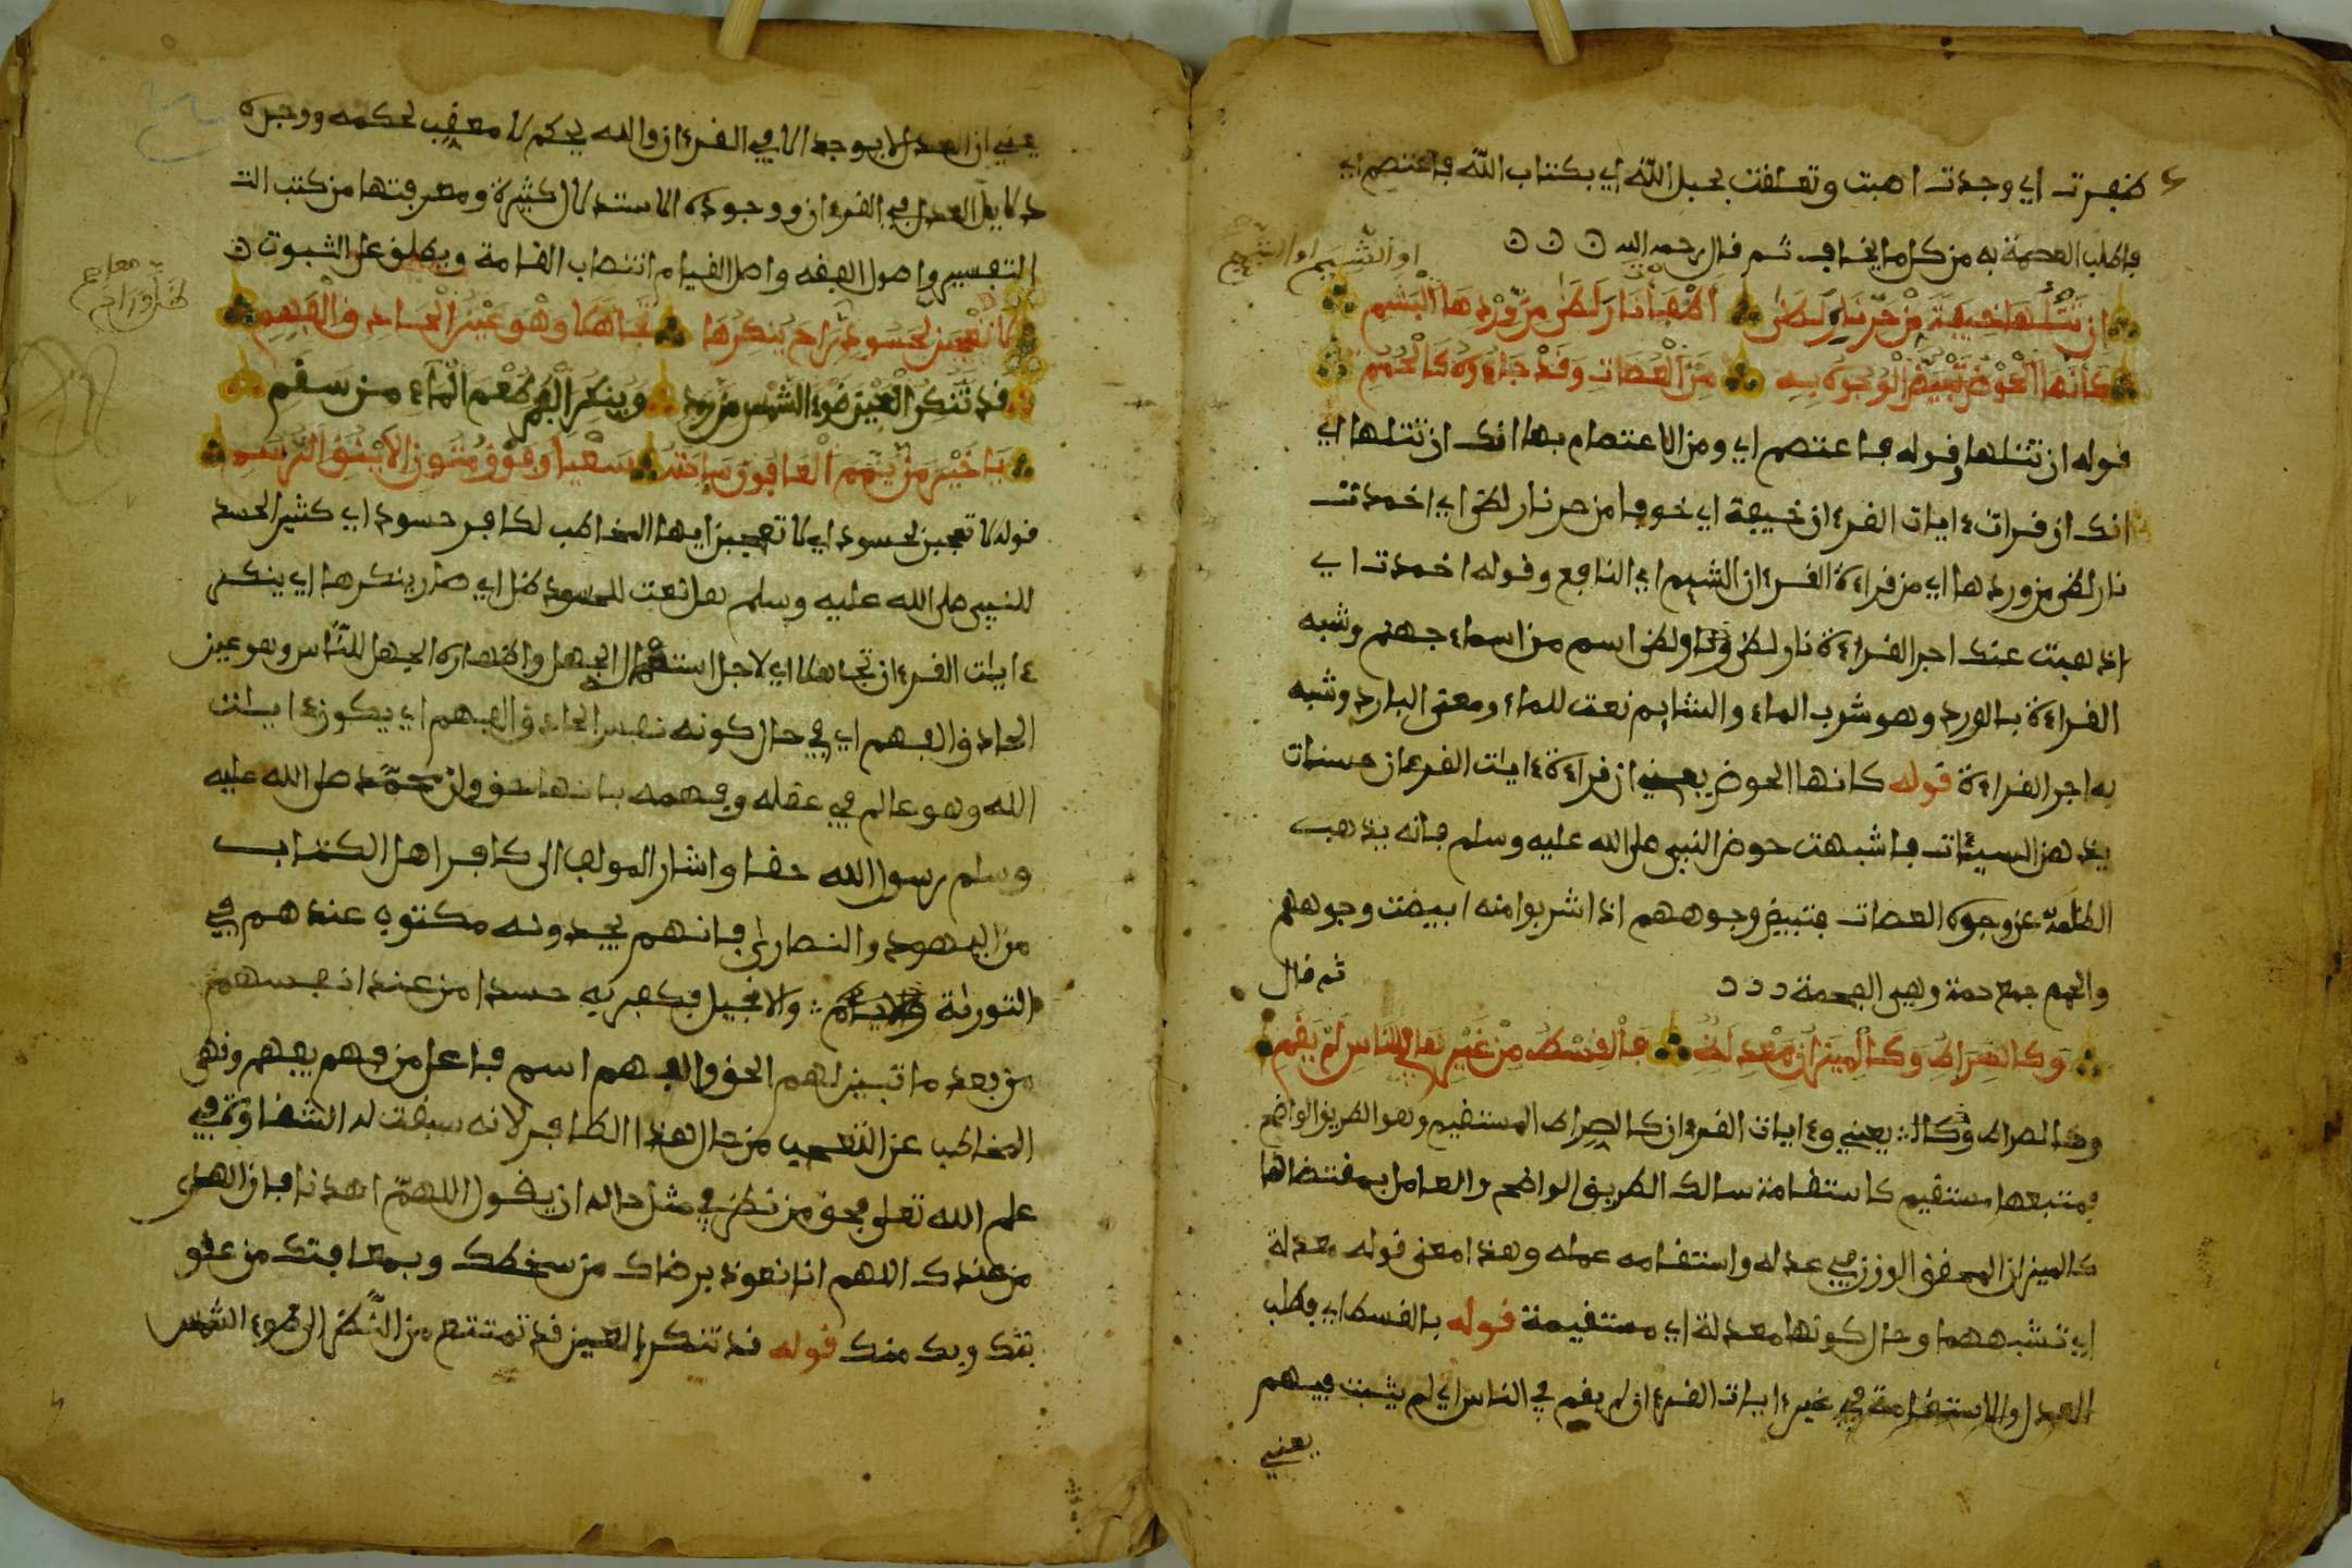 ظفرت اي وجدت اهبت وتعلقت بحبل الله اي بكتاب الله فاعتصم اي
فاطلب العصمة به من كل ما يخاف ثم قال رحمه الله
او الشيم او الشبم
ان تتلها خيفة من حر نار لظى اطفأت نار لظى من وردها الشبم
كأنها الحوض تبيض الوجوه به من العصات وقد جاءوه كالحمم
قوله ان تتلها وقوله فاعتصم اي ومن الاعتصام بها انك ان تتلها اي
انك ان قرات ءايات القرءان خيفة اي خوفا من حر نار لظى اي اخمدت
نار لظى من وردها اي من قراءة القرءان الشبم اي النافع وقوله اخمدت اي
اذهبت عنك اجر القراءة نار لظى ولظى اسم من اسماء جهنم وشبه
القراءة بالورد وهو شرب الماء والشبم نعت للماء ومعنى البارد وشبه
به اجر القراءة قوله كانها الحوض يعني ان قراءة ءايات القرءان حسنات
يذهبن السيئات فاشبهت حوض النبي صلى الله عليه وسلم فانه يذهب
الظلمة عن وجوه العصات فتبيض وجوههم اذا شربوا منه ابيضت وجوههم
والحمم جمع حمة وهي الفحمة ثم قال
وكالصراط وكالميزان معدلة فالقسط من غيرها في الناس لم يقم
وكالصراط وكا يعني وءايات القرءان كالصراط المستقيم وهو الطريق الواضح
فمتبعها مستقيم كاستقامة سالك الطريق الواضح والعامل بمقتضاها
كالميزان المحقق الوزن في عدله واستقامه عمله وهذا معنى قوله معدلة
اي تشبههما وحال كونها معدلة اي مستقيمة قوله بالقسط اي فطلب
العدل والاستقامة في غير ءايات القرءان لم يقم في الناس اي لم يثبت فيهم
يعني
يعني ان العدل لا يوجد الا في القرءان والله يحكم لا معقب لحكمه ووجره
دلايل العدل في القرءان ووجوده الاستدلال كثيرة ومعرفتها من كتب الت
التفسير واصول الفقه واصل القيام انتصاب القامة ويطلق على الثبوت
لا تعجبن لحسود راح ينكرها تجاهلا وهو عين الحاذق الفهم
قد تنكر العين ضوء الشمس من رمد وينكر الفم طعم الماء من سقم
يا خير من يمم العافون ساحته سعيا وفوق متون الاينق الرسم
قوله لا تعجبن لحسود اي لا تعجبن ايها المخاطب لكافر حسود اي كثير الحسد
للنبي صلى الله عليه وسلم نعت للحسود ظل اي صار ينكرها اي ينكر
ءايات القرءان تجاهلا اي لاجل استعمال الجهل واظهاره الجهل للناس وهو عين
الحاذق الفهم اي في حال كونه نفس الحاذق الفهم اي يكون ءايات
الله وهو عالم في عقله وفهمه بانها حق وان محمد صلى الله عليه
وسلم رسول الله حقا واشار المولف الى كافر اهل الكتاب
من اليهود والنصارى فانهم يجدونه مكتوبا عندهم في
التورىة والانجيل فكفر به حسدا من عند انفسهم
من بعد ما تبين لهم الحق والفهم اسم فاعل من فهم يفهم ونهى
المخاطب عن التعجب من حال هذا الكافر لانه سبقت له الشقاوة في
علم الله تعلى فحق من نظر في مثل حاله ان يقول اللهم اهدنا فان الهدى
من عندك اللهم انا نعوذ برضاك من سخطك وبمعافتك من عقو
بتك وبك منك قوله قد تنكر العين قد تمتنع من النظر الى ضوء الشمس